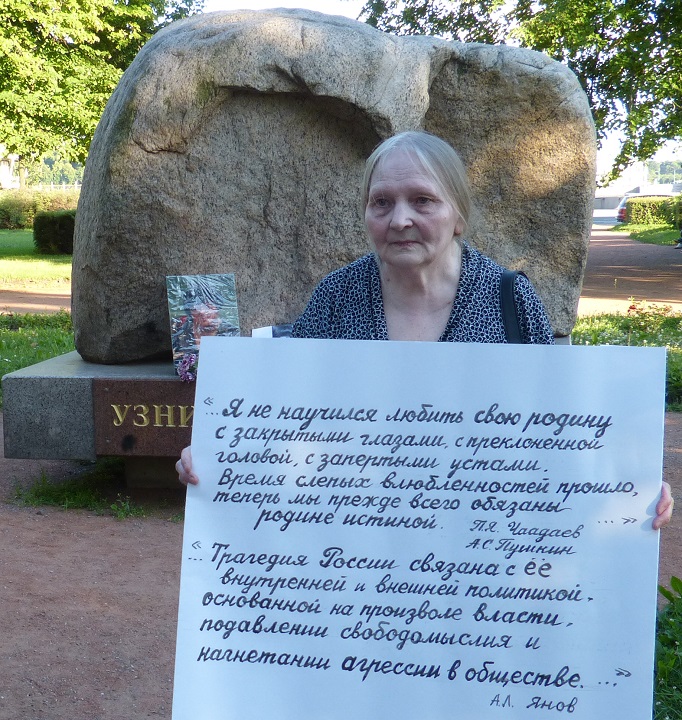 УЗНИ
«...Я не научился любить свою родину
с закрытыми глазами, с преклоненной
головой, с запертыми устами.
Время слепых влюбленностей прошло,
теперь мы прежде всего обязаны
родине истиной. ...»
П.Я. Чаадаев
А.С. Пушкин
«...Трагедия России связана с её
внутренней и внешней политикой,
основанной на произволе власти,
подавлении свободомыслия и
нагнетании агрессии в обществе. ...»
А.Л. Янов